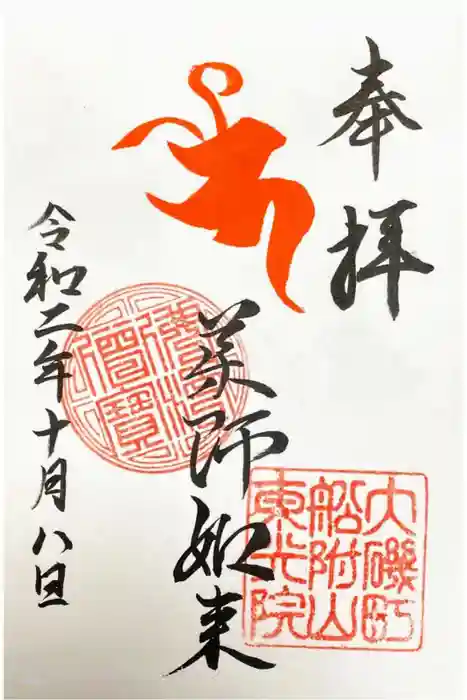 奉拝
薬師如来
令和二年十月八日
大磯町
船附山
東光院